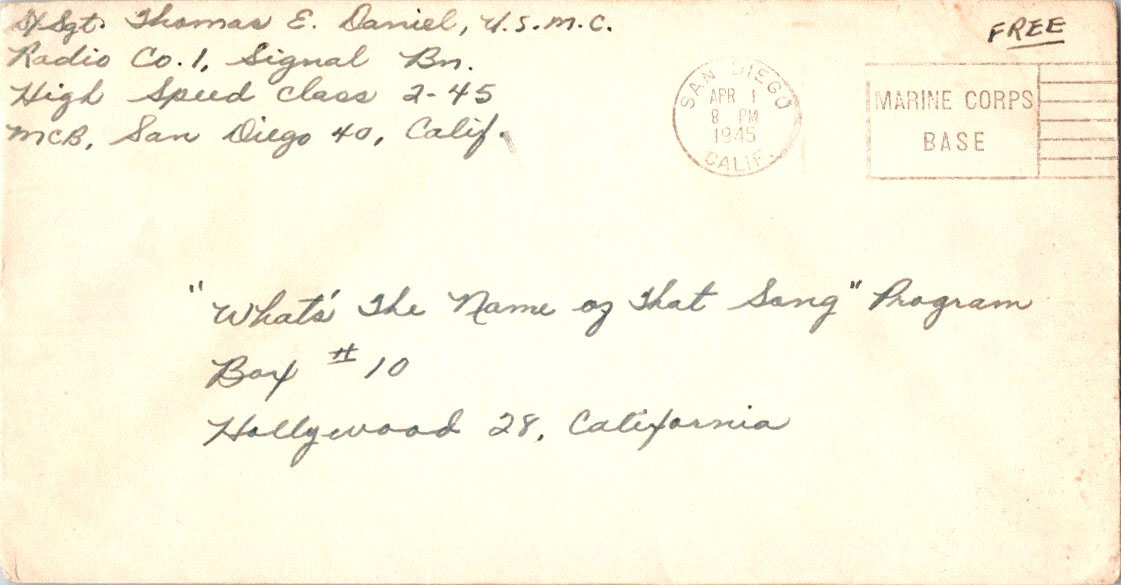 S/Sgt. Thomas E. Daniel, U.S.M.C.
Radio Co. 1, Signal Bn.
High Speed Class 2-45
MCB, San Diego 40, Calif.
FREE
SAN DIEGO
APR 1
8 PM
1945
CALIF.
MARINE CORPS
BASE
"What's The Name of That Song" Program
Box #10
Hollywood 28, California